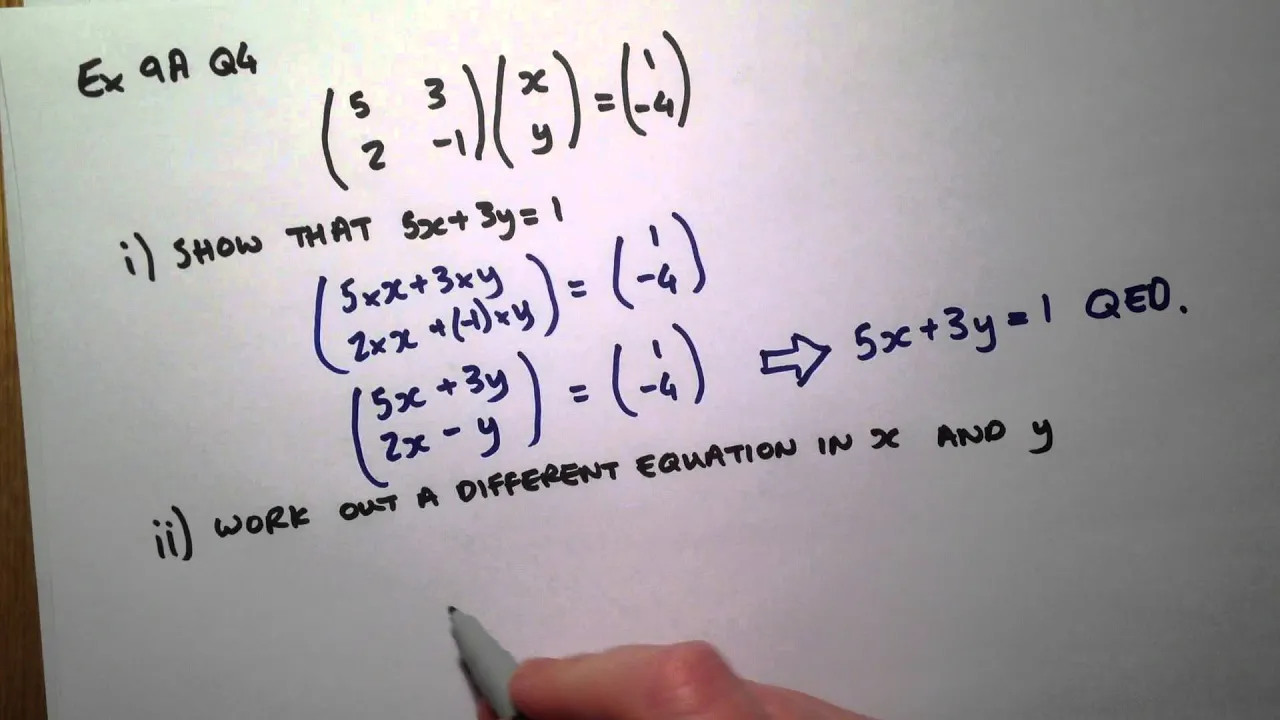 Ex 9A Q4
(5 3) (x) = (1)
(2 -1) (y) (-4)
i) SHOW THAT 5x+3y=1
(5×x+3×y) = (1)
(2×x+(-1)×y) (-4)
(5x+3y) = (1) ⇒ 5x+3y=1 QED.
(2x-y) (-4)
ii) WORK OUT A DIFFERENT EQUATION IN x AND y